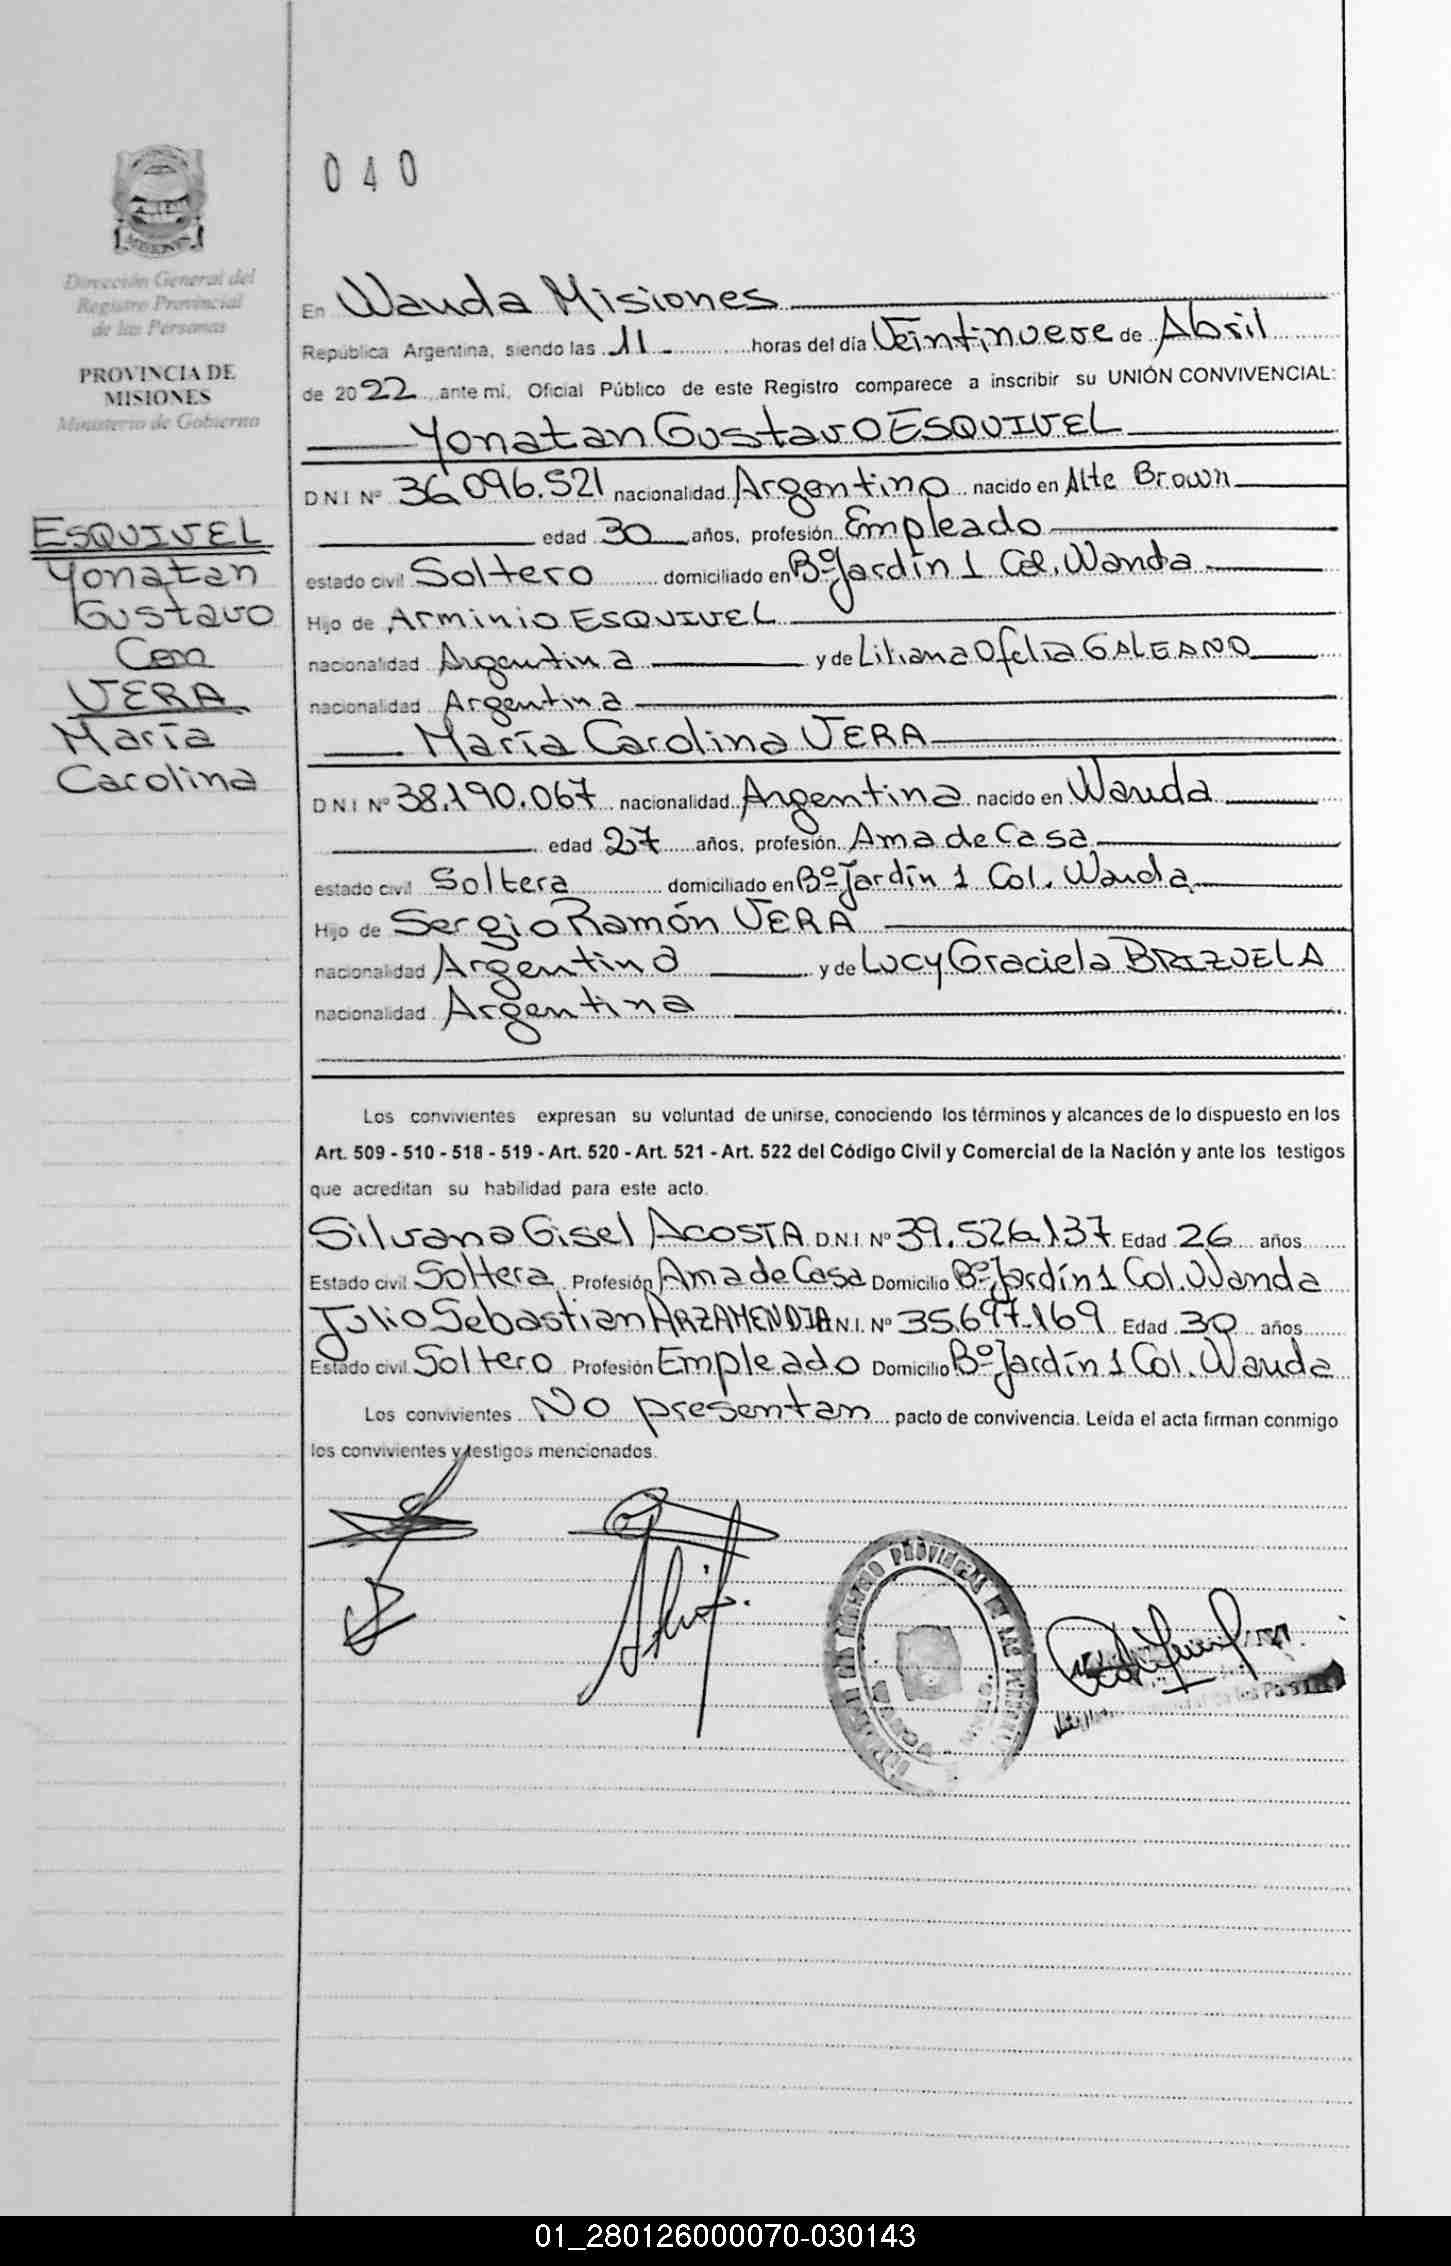 040
Dirección General del
Registro Provincial
de las Personas
PROVINCIA DE
MISIONES
Ministerio de Gobierno
ESQUIVEL
Yonatan
Gustavo
Con
VERA
María
Carolina
En Wanda Misiones
República Argentina, siendo las 11 horas del día Veintinueve de Abril
de 2022 ante mí, Oficial Público de este Registro comparece a inscribir su UNIÓN CONVIVENCIAL:
Yonatan Gustavo ESQUIVEL
D N I Nº 36.096.521 nacionalidad Argentino nacido en Alte Brown
edad 30 años, profesión Empleado
estado civil Soltero domiciliado en Bº Jardín 1 Col. Wanda
Hijo de Arminio ESQUIVEL
nacionalidad Argentina y de Liliana Ofelia GALEANO
nacionalidad Argentina
María Carolina VERA
D N I Nº 38.190.067 nacionalidad Argentina nacido en Wanda
edad 27 años, profesión Ama de Casa
estado civil Soltera domiciliado en Bº Jardín 1 Col. Wanda
Hijo de Sergio Ramón VERA
nacionalidad Argentino y de Lucy Graciela BRIZUELA
nacionalidad Argentina
Los convivientes expresan su voluntad de unirse, conociendo los términos y alcances de lo dispuesto en los
Art. 509 - 510 - 518 - 519 - Art. 520 - Art. 521 - Art. 522 del Código Civil y Comercial de la Nación y ante los testigos
que acreditan su habilidad para este acto.
Silvana Gisel ACOSTA D.N.I. Nº 39.526.137 Edad 26 años
Estado civil Soltera Profesión Ama de Casa Domicilio Bº Jardín 1 Col. Wanda
Julio Sebastian ARZAMENDIA N.I. Nº 35.697.169 Edad 30 años
Estado civil Soltero Profesión Empleado Domicilio Bº Jardín 1 Col. Wanda
Los convivientes No presentan pacto de convivencia. Leída el acta firman conmigo
los convivientes y testigos mencionados.
REGISTRO PROVINCIAL DE LAS PERSONAS
01_280126000070-030143